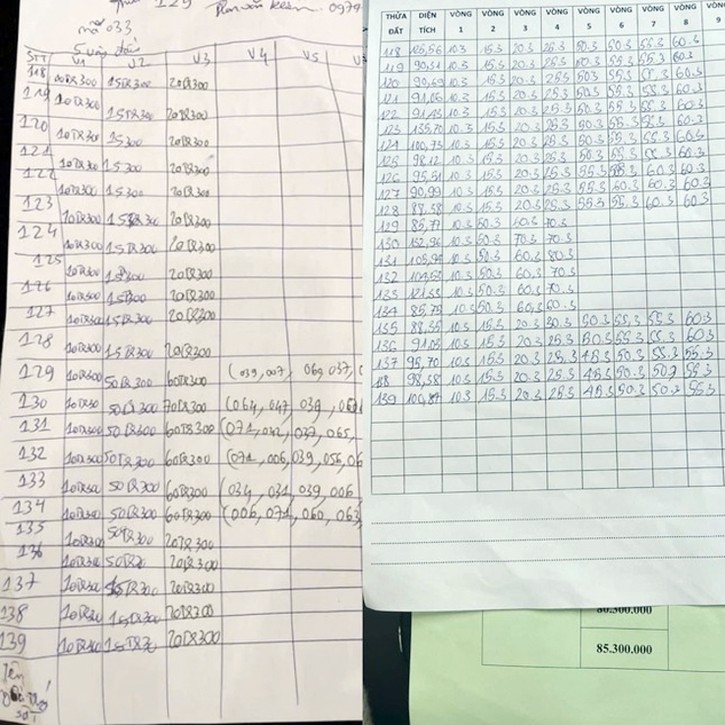 129
mã 033
5 vòng đấu
STT V1 V2 V3 V4 V5
118 10TR300 15TR300 20TR300
119 10TR300 15TR300 20TR300
120 10TR300 15300 20TR300
121 10TR300 15300 20TR300
122 10TR300 15300 20TR300
123 10TR300 15TR300 20TR300
124 10TR300 15TR300 20TR300
125 10TR300 15300 20TR300
126 10TR300 15TR300 20TR300
127 10TR300 15TR300 20TR300
128 10TR300 15TR300 20TR300
129 10TR300 50TR300 60TR300 (039, 007, 069, 037,
130 10TR30 50TR300 70TR300 (064, 047, 039,
131 10TR300 50TR300 60TR300 (071, 042, 037, 065,
132 10TR300 50TR300 60TR300 (071, 006, 039, 056, 06
133 10TR300 50TR300 60TR300 (034, 031, 039, 006
134 10TR300 50TR300 60TR300 (006, 071, 060, 063
135 10TR300 50TR300 20TR300
136 10TR300 50TR30 20TR300
137 10TR300 15TR300 20TR300
138 10TR30 15TR300 20TR300
139 10TR300 15TR30 20TR300
Tên
THỬA ĐẤT DIỆN TÍCH VÒNG 1 VÒNG 2 VÒNG 3 VÒNG 4 VÒNG 5 VÒNG 6 VÒNG 7 VÒNG 8 VÒNG 9
118 126,56 10.3 15.3 20.3 25.3 50.3 50.3 55.3 60.3
119 90,51 10.3 15.3 20.3 25.3 50.3 55.3 55.3 60.3
120 90,69 10.3 15.3 20.3 25.3 50.3 55.3 55.3 60.3
121 91,06 10.3 15.3 20.3 25.3 50.3 55.3 55.3 60.3
122 91,43 10.3 15.3 20.3 25.3 50.3 55.3 55.3 60.3
123 155,70 10.3 15.3 20.3 25.3 50.3 55.3 55.3 60.3
124 100,73 10.3 15.3 20.3 25.3 50.3 55.3 55.3 60.3
125 98,12 10.3 15.3 20.3 25.3 50.3 55.3 55.3 60.3
126 95,51 10.3 15.3 20.3 25.3 55.3 55.3 60.3 60.3
127 90,99 10.3 15.3 20.3 25.3 55.3 60.3 60.3 60.3
128 88,58 10.3 15.3 20.3 25.3 55.3 55.3 60.3 60.3
129 85,77 10.3 50.3 60.3 70.3
130 152,96 10.3 50.3 70.3 70.3
131 105,90 10.3 50.3 60.3 80.3
132 10.3 50.3 60.3 70.3
133 10.3 50.3 60.3 70.3
134 85,79 10.3 50.3 60.3 60.3
135 88,35 10.3 15.3 20.3 30.3 50.3 55.3 55.3 60.3
136 91,03 10.3 15.3 20.3 25.3 50.3 55.3 55.3 60.3
137 95,70 10.3 15.3 20.3 25.3 45.3 50.3 55.3 55.3
138 98,38 10.3 15.3 20.3 25.3 45.3 50.3 50.3 55.3
139 100,87 10.3 15.3 20.3 25.3 45.3 50.3 50.3 55.3
80.300.000
85.300.000